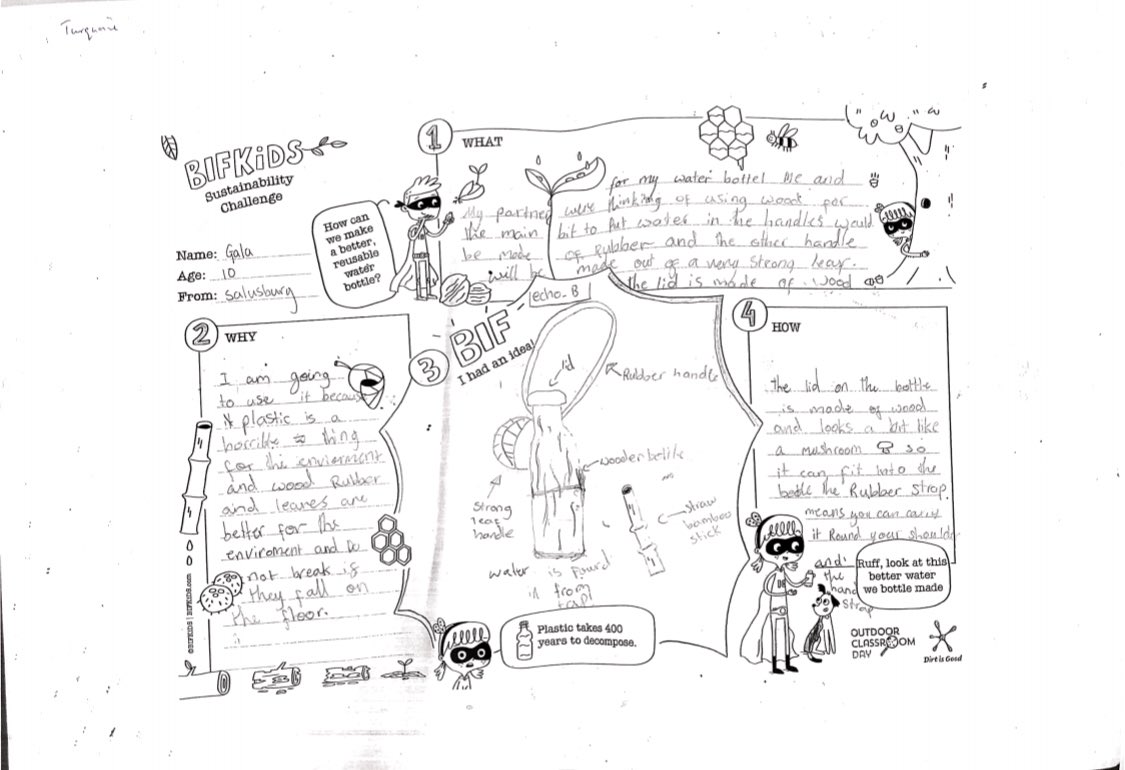 Turquoise
BIFKiDS
Sustainability
Challenge
Name: Gala
Age: 10
From: Salusburg
How can
we make
a better,
reusable
water
bottle?
1 WHAT
for my water bottel Me and
My partner were thinking of using wood for
the main bit to put water in the handles would
be made of Rubber and the other handle
will be made out of a very strong leaf.
the lid is made of wood
2 WHY
I am going
to use it because
plastic is a
horrible thing
for the envierment
and wood Rubber
and leaves are
better for the
enviroment and do
not break if
they fall on
the floor.
©BIFKIDS | BIFKIDS.com
3 BIF
I had an idea!
echo. B
lid
Rubber handle
wooden
strong
leaf
handle
straw
bamboo
stick
water is pourd
in from
tap
Plastic takes 400
years to decompose.
4 HOW
the lid on the bottle
is made of wood
and looks a bit like
a mushroom so
it can fit into the
bottle the Rubber strop
means you can carry
it Round your shoulder
and
the
hand
strap
Ruff, look at this
better water
we bottle made
OUTDOOR
CLASSROOM
DAY
Dirt is Good